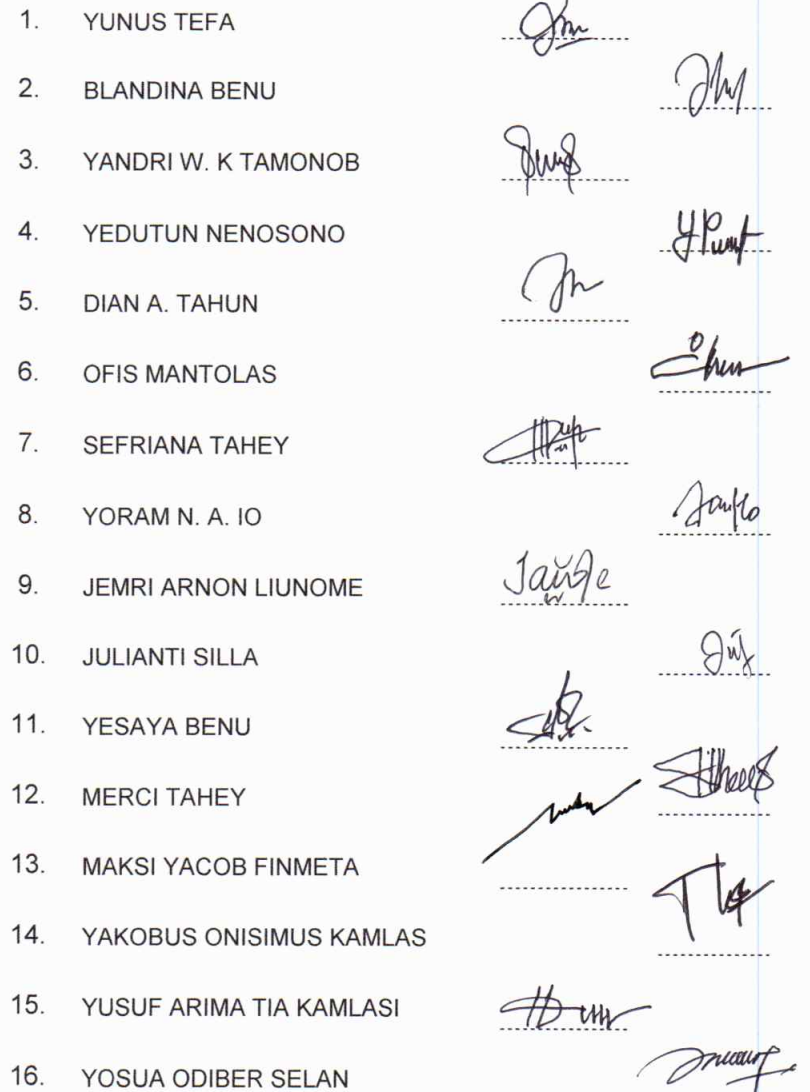 1. YUNUS TEFA
2. BLANDINA BENU
3. YANDRI W. K TAMONOB
4. YEDUTUN NENOSONO
5. DIAN A. TAHUN
6. OFIS MANTOLAS
7. SEFRIANA TAHEY
8. YORAM N. A. IO
9. JEMRI ARNON LIUNOME
10. JULIANTI SILLA
11. YESAYA BENU
12. MERCI TAHEY
13. MAKSI YACOB FINMETA
14. YAKOBUS ONISIMUS KAMLAS
15. YUSUF ARIMA TIA KAMLASI
16. YOSUA ODIBER SELAN